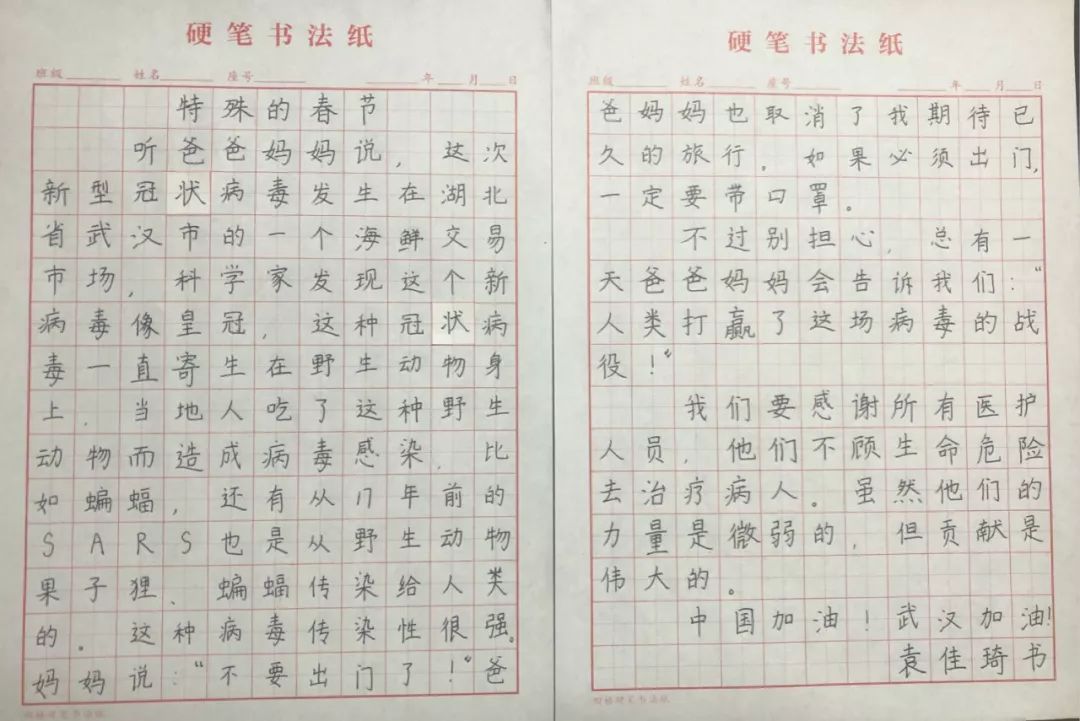 硬笔书法纸
班级 姓名 座号 年 月 日
特殊的春节
听爸爸妈妈说，这次
新型冠状病毒发生在湖北
省武汉市的一个海鲜交易
市场，科学家发现这个新
病毒像皇冠，这种冠状病
毒一直寄生在野生动物身
上，当地人吃了这种野生
动物而造成病毒感染，比
如蝙蝠，还有从17年前的
SARS也是从野生动物
果子狸、蝙蝠传染给人类
的。这种病毒传染性很强。
妈妈说：“不要出门了！”爸
四格硬笔书法纸
硬笔书法纸
班级 姓名 座号 年 月 日
爸妈妈也取消了我期待已
久的旅行。如果必须出门，
一定要带口罩。
不过别担心，总有一
天爸爸妈妈会告诉我们：“
人类打赢了这场病毒的战
役！”
我们要感谢所有医护
人员，他们不顾生命危险
去治疗病人。虽然他们的
力量是微弱的，但贡献是
伟大的。
中国加油！武汉加油！
袁佳琦书
四格硬笔书法纸